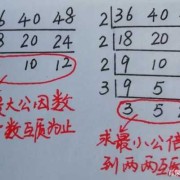 6 40 48
8 20 24
10 12
大公因数
数互质为止
2 36 40 4
2 18 20
2 9 10
3 9 5
3 5 2
求最小公倍
到两两互质